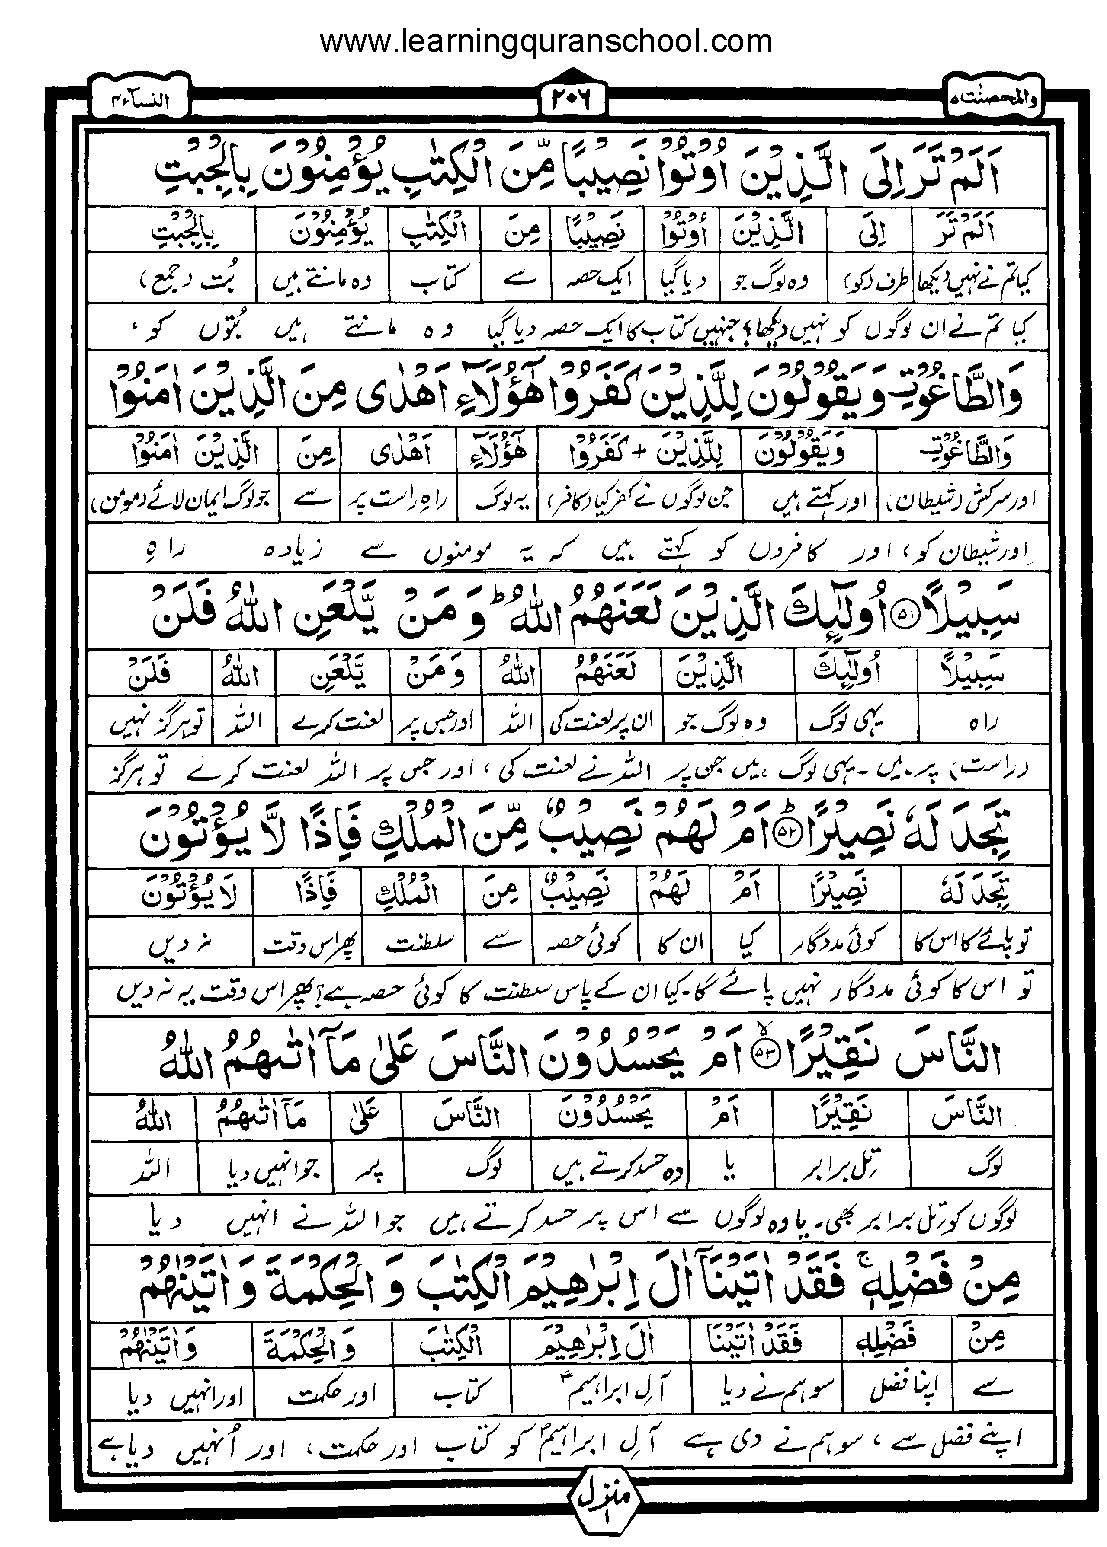 www.learningquranschool.com
والمحصنٰت ۵
۲۰۶
النسآء ۴
اَلَمْ تَرَ اِلَى الَّذِیْنَ اُوْتُوْا نَصِیْبًا مِّنَ الْكِتٰبِ یُؤْمِنُوْنَ بِالْجِبْتِ
اَلَمْ تَرَ اِلَى الَّذِیْنَ اُوْتُوْا نَصِیْبًا مِنَ الْكِتٰبِ یُؤْمِنُوْنَ بِالْجِبْتِ
کیا تم نے نہیں دیکھا طرف (کو) وہ لوگ جو دیا گیا ایک حصہ سے کتاب وہ مانتے ہیں بُت (جمع)
کیا تم نے ان لوگوں کو نہیں دیکھا؟ جنہیں کتاب کا ایک حصہ دیا گیا وہ مانتے ہیں بُتوں کو،
وَالطَّاغُوْتِ وَیَقُوْلُوْنَ لِلَّذِیْنَ كَفَرُوْا هٰۤؤُلَآءِ اَهْدٰى مِنَ الَّذِیْنَ اٰمَنُوْا
وَالطَّاغُوْتِ وَیَقُوْلُوْنَ لِلَّذِیْنَ + كَفَرُوْا هٰۤؤُلَآءِ اَهْدٰى مِنَ الَّذِیْنَ اٰمَنُوْا
اور سرکش (شیطان) اور کہتے ہیں جن لوگوں نے کفر کیا (کافر) یہ لوگ راہِ راست پر سے جو لوگ ایمان لائے (مومن)
اور شیطان کو، اور کافروں کو کہتے ہیں کہ یہ مومنوں سے زیادہ راہِ
سَبِیْلًا ۝۵۱ اُولٰٓىِٕكَ الَّذِیْنَ لَعَنَهُمُ اللّٰهُ ؕ وَ مَنْ یَّلْعَنِ اللّٰهُ فَلَنْ
سَبِیْلًا اُولٰٓىِٕكَ الَّذِیْنَ لَعَنَهُمُ اللّٰهُ وَ مَنْ یَّلْعَنِ اللّٰهُ فَلَنْ
راہ یہی لوگ وہ لوگ جو ان پر لعنت کی اللہ اور جس پر لعنت کرے اللہ تو ہرگز نہیں
(راست) پر ہیں۔ یہی لوگ ہیں جن پر اللہ نے لعنت کی، اور جس پر اللہ لعنت کرے تو ہرگز
تَجِدَ لَهٗ نَصِیْرًا ؕ۝۵۲ اَمْ لَهُمْ نَصِیْبٌ مِّنَ الْمُلْكِ فَاِذًا لَّا یُؤْتُوْنَ
تَجِدَ لَهٗ نَصِیْرًا اَمْ لَهُمْ نَصِیْبٌ مِنَ الْمُلْكِ فَاِذًا لَا یُؤْتُوْنَ
تو پائے گا اس کا کوئی مددگار کیا ان کا کوئی حصہ سے سلطنت پھر اس وقت نہ دیں
تو اس کا کوئی مددگار نہیں پائے گا۔ کیا ان کے پاس سلطنت کا کوئی حصہ ہے؟ پھر اس وقت یہ نہ دیں
النَّاسَ نَقِیْرًا ۙ۝۵۳ اَمْ یَحْسُدُوْنَ النَّاسَ عَلٰى مَاۤ اٰتٰىهُمُ اللّٰهُ
النَّاسَ نَقِیْرًا اَمْ یَحْسُدُوْنَ النَّاسَ عَلٰى مَاۤ اٰتٰىهُمُ اللّٰهُ
لوگ تِل برابر یا وہ حسد کرتے ہیں لوگ پر جو انہیں دیا اللہ
لوگوں کو تِل برابر بھی۔ یا وہ لوگوں سے اس پر حسد کرتے ہیں جو اللہ نے انہیں دیا
مِنْ فَضْلِهٖ ۚ فَقَدْ اٰتَیْنَاۤ اٰلَ اِبْرٰهِیْمَ الْكِتٰبَ وَ الْحِكْمَةَ وَ اٰتَیْنٰهُمْ
مِنْ فَضْلِهٖ فَقَدْ اٰتَیْنَا اٰلَ اِبْرٰهِیْمَ الْكِتٰبَ وَ الْحِكْمَةَ وَ اٰتَیْنٰهُمْ
سے اپنا فضل سو ہم نے دیا آلِ ابراہیمؑ کتاب اور حکمت اور انہیں دیا
اپنے فضل سے، سو ہم نے دی ہے آلِ ابراہیمؑ کو کتاب اور حکمت، اور اُنہیں دیا ہے
منزل ۱